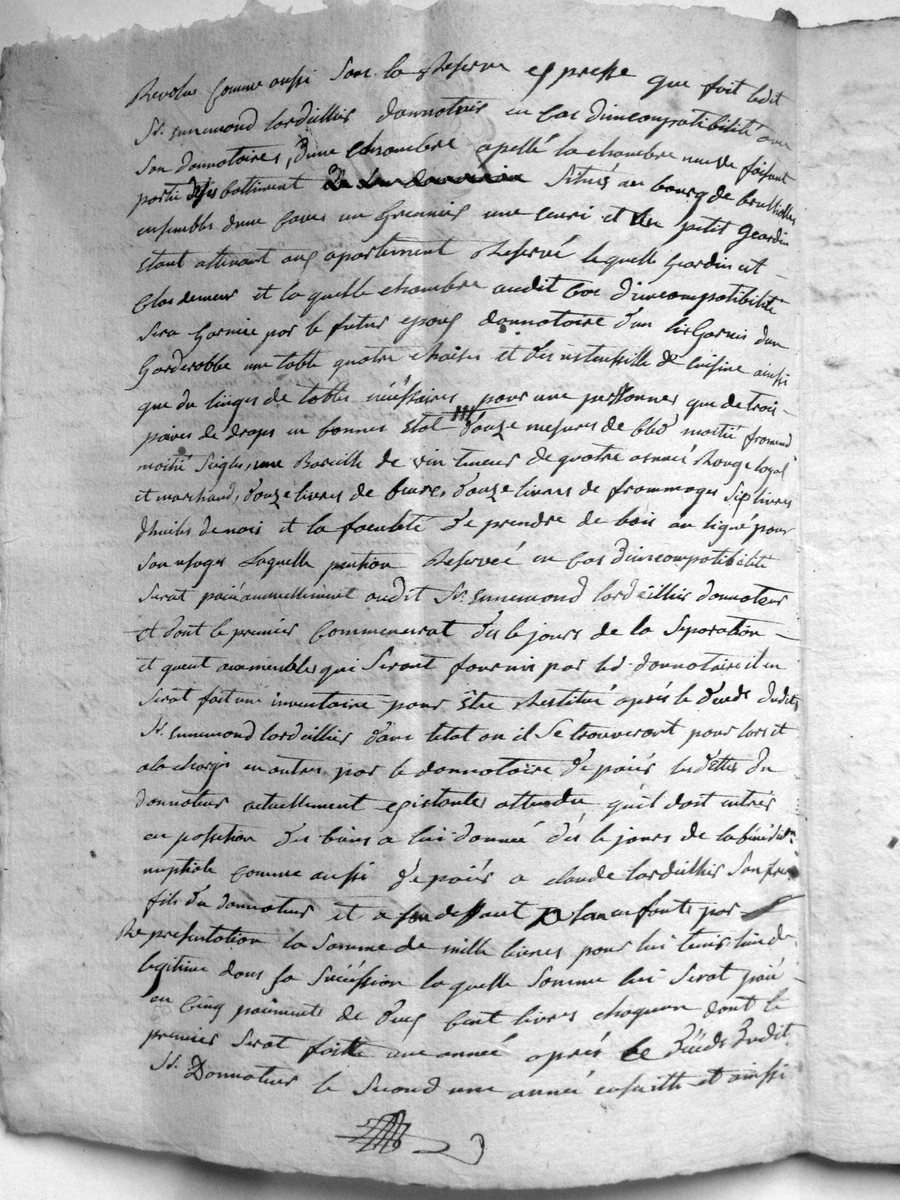 Revolue comme aussi sous la Reserve expresse que fait ledit
Sr. ennemond Cordeillier donnateur en Cas d'incompatibilité avec
Son donnataires, d'une chambre apellé la chambre neuve faisant
partie de ses battiment Situés au bourg de brussolles
ensembles dune Caves un Grenier une ecuri et un petit Geardin
etant attenant aux apartement Reservé lequelle Geardin est
Clos de meur et laquelle chambre audit Cas d'incompatibilité
Sera Garnie par le futur epoux donnataire d'un lit Garnis d'un
Garderobbe une table quatre chaises et des ustensille de Cuisine aussi
que du linges de tables necéssaires pour une personnes que de trois
paires de draps en bonnes état d'ouze mesures de bled moitié froment
moitié Seigle, une Bareille de vin teneur de quatre asneé Rouge loyal
et marchand, d'ouze livres de beure, d'ouze livres de frommages Six livres
d'huiles de nois et la faculté de prendre de bois au ligné pour
Son usages laquelle pention Reserveé en Cas d'incompatibilité
Serat paié annuellement audit Sr. ennemond Cordeillier donnateur
et dont le premier Commencerat dès le jours de la Separation
et quent aux meubles qui Seront fournir par led. donnataire il en
Serat fait une inventaire pour être Restitué après le déceds dudit
Sr. ennemond Cordeillier dans l'etat ou il Se trouveront pour lors et
a la charges en outres par le donnataire de paiér les dettes du
donnateur actuellement existantes attendu qu'il doit entrer
en possetion des biens a lui donneé dès le jours de la bénédictn
nuptiale comme aussi de paiér a claude Cordeillier Son frere
fils du donnateur et a son deffaut a Ses enfants par
Representation la Somme de mille livres pour lui tenir lieu de
legitime dans Sa Succéssion laquelle Somme lui Serat paié
en Cinq paiments de deux Cent livres chaquun dont le
premier Serat faitte une anneé après le Déceds dudit
Sr. Donnateur le Second une anneé ensuitte et ainssi